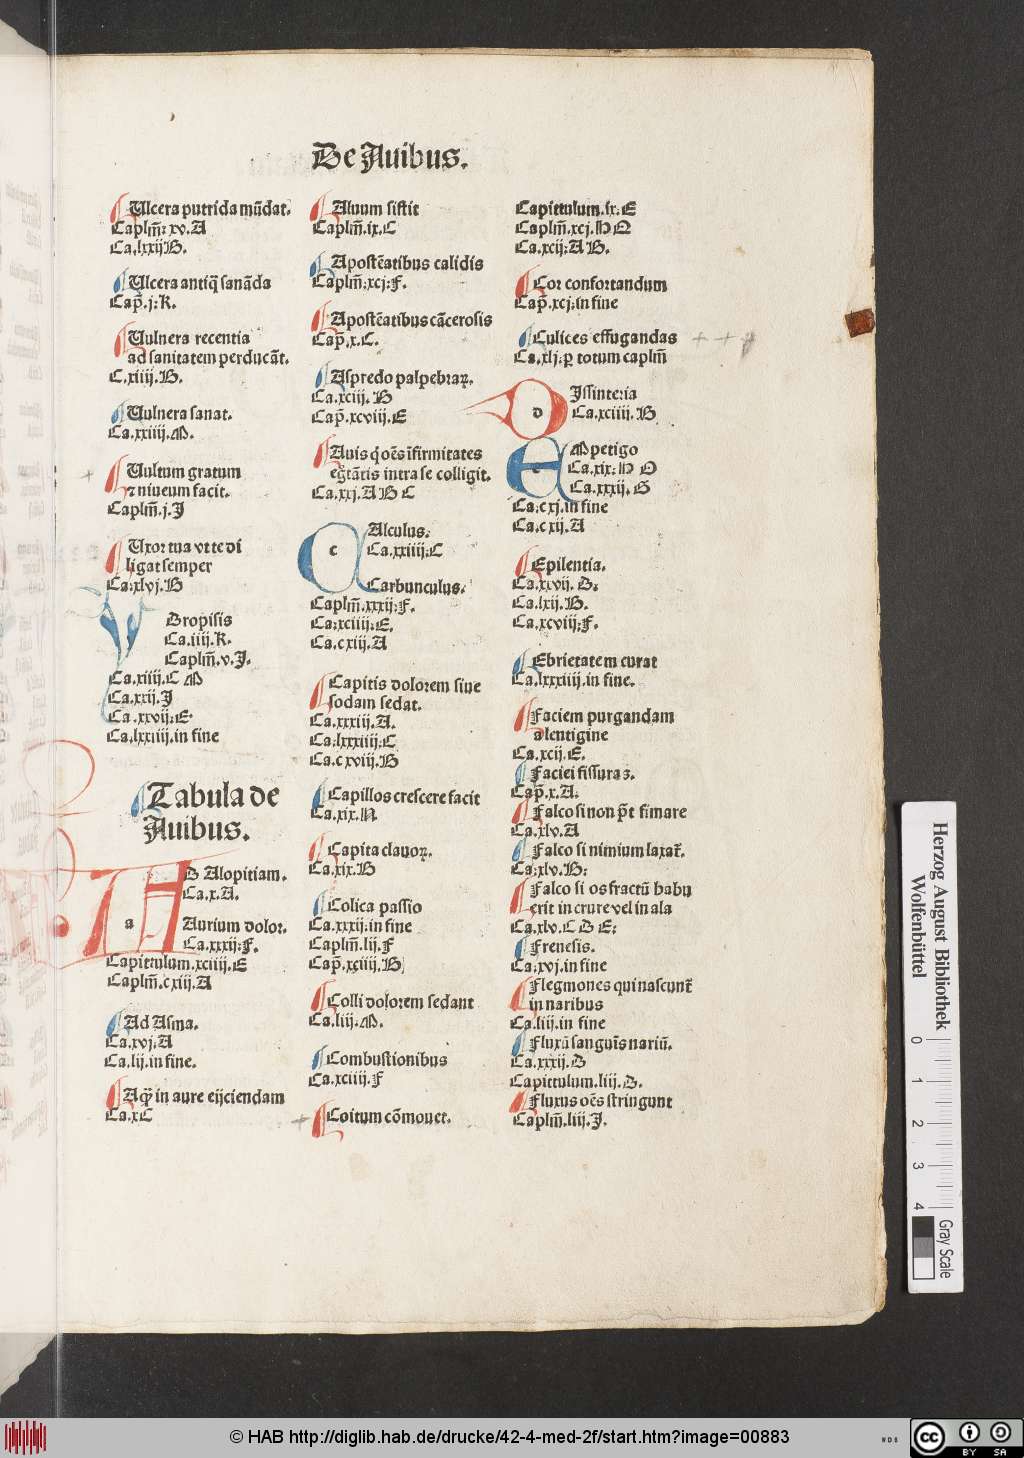 De Auibus.
Ulcera putrida mūdat.
Caplm̄: xv. A
Ca. lxxij B.
Ulcera antiq̄ sanāda
Cap̄. j: K.
Uulnera recentia
ad sanitatem perducāt.
C. xiiij. B.
Uulnera sanat.
Ca. xxiiij. M.
Uultum gratum
⁊ niueum facit.
Caplm̄. j. J
Uxor tua vt te di
ligat semper
Ca: xlvj. B
Y
Dropisis
Ca. iiij. K.
Caplm̄. v. J.
Ca. xiiij. C M
Ca. xxij. J
Ca. xxvij: E
Ca. lxxiiij. in fine
Tabula de
Auibus.
A a
B Alopitiam.
Ca. x. A.
Aurium dolor.
Ca. xxxij: F.
Capittulum. xciiij. E
Caplm̄. cxiij. A
Ad Asma.
Ca. xvj: A
Ca. lij. in fine.
Aq̄ in aure eijciendam
Ca. x C
Aluum sistit
Caplm̄. ix. C
Apostēatibus calidis
Caplm̄: xcj: F.
Apostēatibus cācerosis
Cap̄. x. C.
Aspredo palpebraꝝ.
Ca. xciij. B
Cap̄. xcviij. E
Auis q̇ oēs īfirmitates
egr̄tātis intra se colligit.
Ca. xxj. A B C
C c
Alculus.
Ca. xxiiij: C
Carbunculus.
Caplm̄. xxxij: F.
Ca: xciiij: E.
Ca. cxiij. A
Capitis dolorem siue
sodam sedat.
Ca. xxxiij. A.
Ca: lxxxiiij: C
Ca. c xviij. B
Capillos crescere facit
Ca. xix. N.
Capita clauoꝝ.
Ca. xix. B
Colica passio
Ca. xxxij: in fine
Caplm̄. lij. F
Cap̄. xciiij. B
Colli dolorem sedant
Ca. liij. M.
Combustionibus
Ca. xciiij. F
Coitum cōmouet.
Capittulum. ix. E
Caplm̄. xcj. N O
Ca. xcij: A B.
Cor confortandum
Cap̄. xcj. in fine
Culices effugandas
Ca. xlj: ꝑ totum caplm̄
D d
Issinteria
Ca. xciiij. B
E e
Mpetigo
Ca. xix: N O
Ca. xxxij. G
Ca: c xj. in fine
Ca. c xij. A
Epilentia.
Ca. xxvij. D:
Ca. lxij. B.
Ca. xcviij: F.
Ebrietatem curat
Ca. lxxxiiij. in fine.
Faciem purgandam
a lentigine
Ca. xcij. E.
Faciei fissuras.
Cap̄. x. A:
Falco si non p̄t fimare
Ca. xlv. A
Falco si nimium laxat̄.
Ca: xlv. B:
Falco si os fractū habu
erit in crure vel in ala
Ca. xlv. C D E:
Frenesis.
Ca: xvj. in fine
Flegmones qui nascunt̄
in naribus
Ca. liij. in fine
Fluxū sanguīs nariū.
Ca. xxxij. D
Capittulum. liij. D.
Fluxus oēs stringunt
Caplm̄. liij. J.
Herzog August Bibliothek
Wolfenbüttel
0 1 2 3 4
Gray Scale
© HAB http://diglib.hab.de/drucke/42-4-med-2f/start.htm?image=00883
WDB
cc BY SA